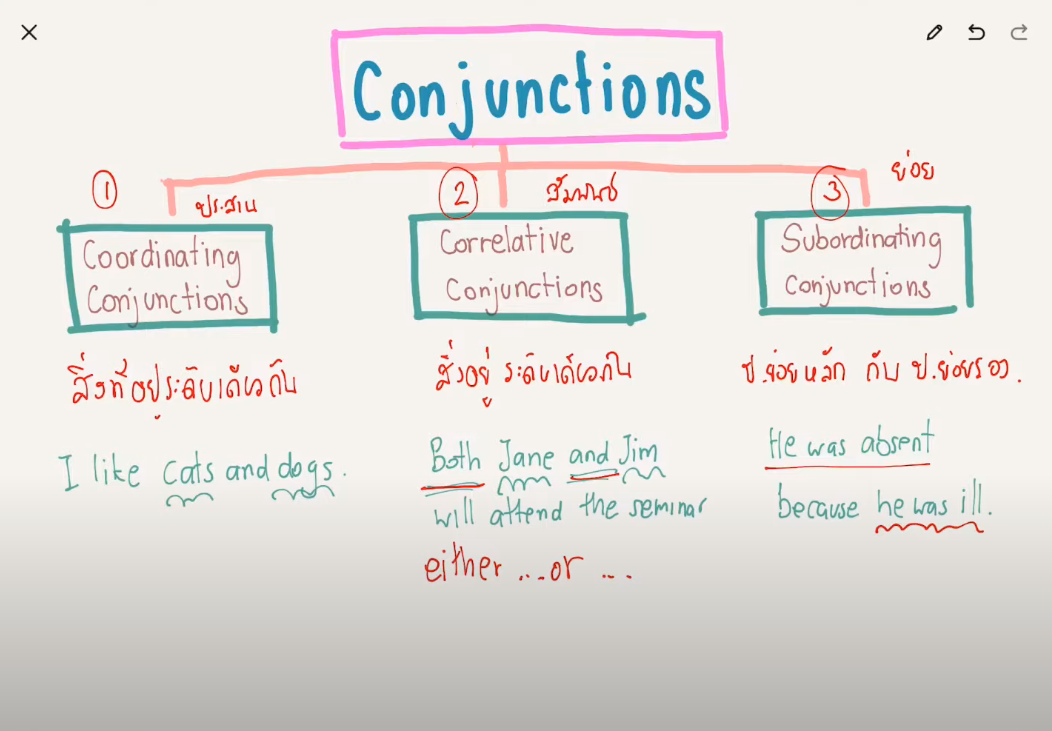 Conjunctions
①
ประสาน
Coordinating
Conjunctions
สิ่งที่อยู่ระดับเดียวกัน
I like cats and dogs.
②
สัมพันธ์
Correlative
Conjunctions
สิ่งอยู่ระดับเดียวกัน
Both Jane and Jim
will attend the seminar
either ... or ...
③
ย่อย
Subordinating
Conjunctions
ป.ย่อยหลัก กับ ป.ย่อยรอง.
He was absent
because he was ill.